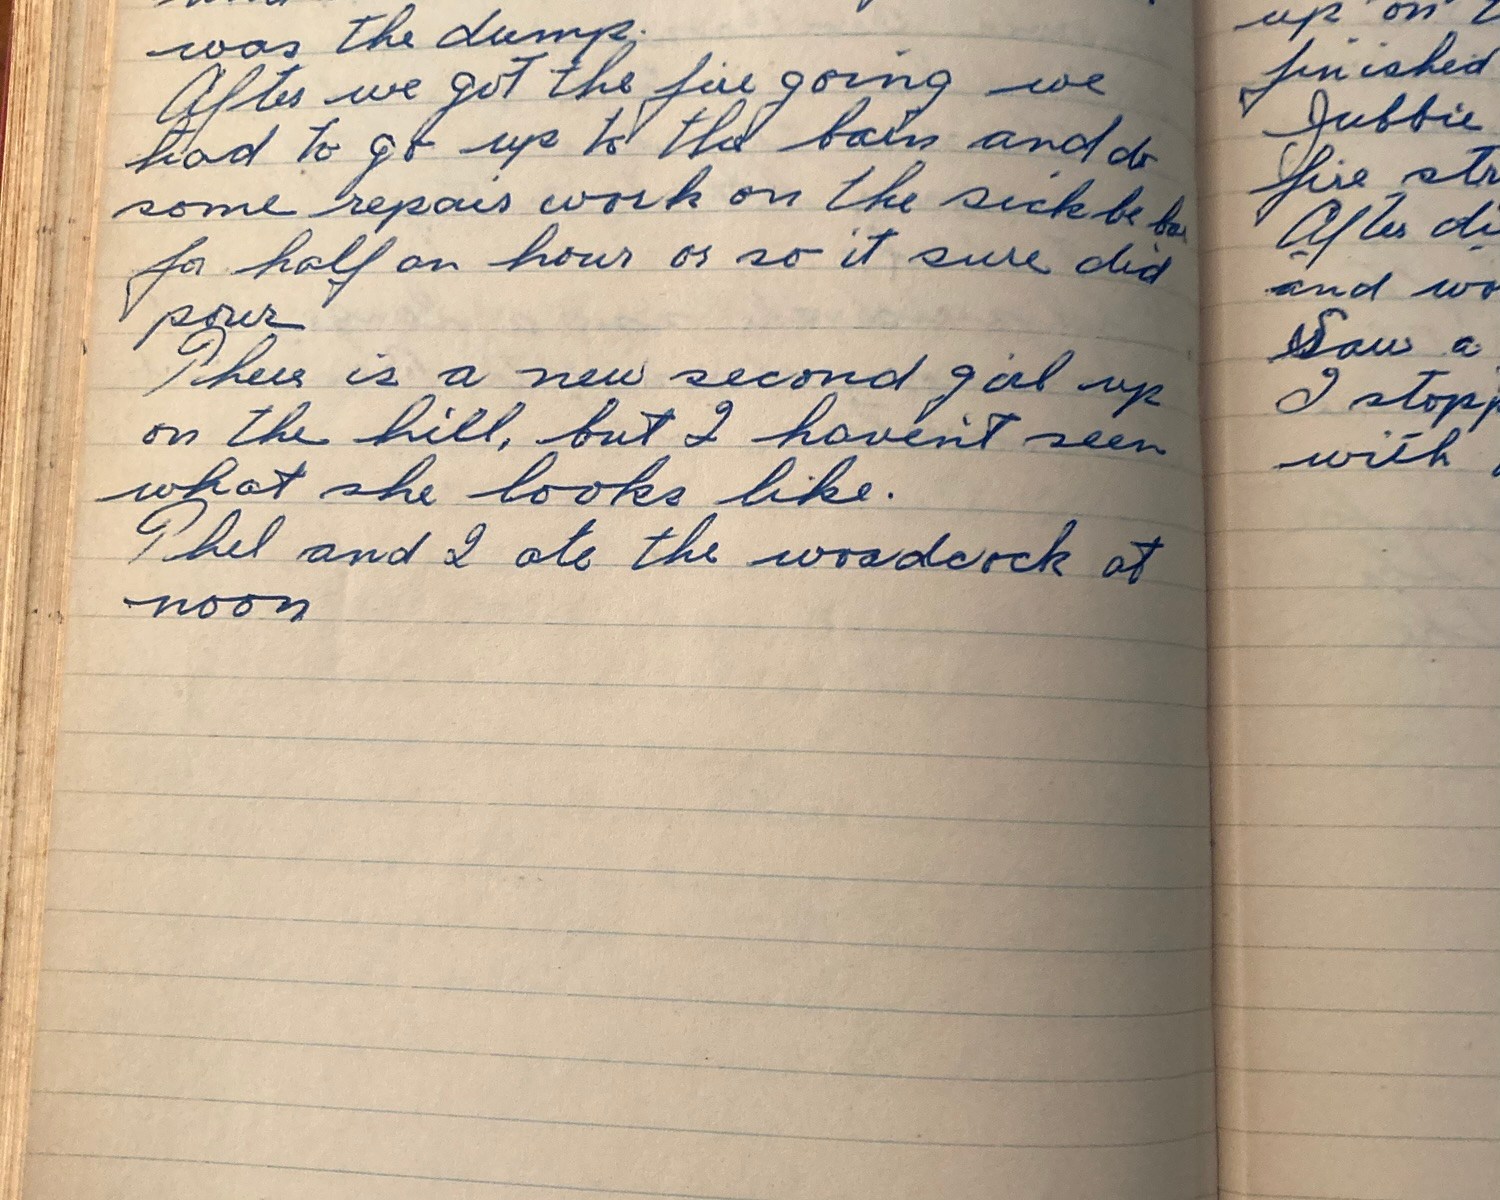 was the dump.
After we got the fire going we
had to go up to the barn and do
some repair work on the sick be bar
for half an hour or so it sure did
pour
There is a new second girl up
on the hill, but I haven't seen
what she looks like.
Phil and I ate the woodcock at
noon
up on
finished
Jubbie
fire str
After di
and wo
Saw a
I stopp
with